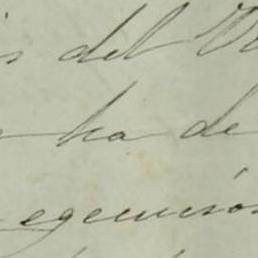 del
ha de
egecución